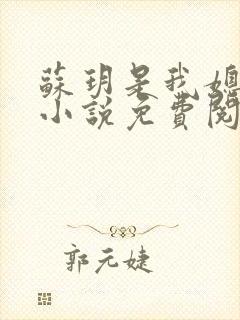 蘇玥是我媽
小說免費閱
郭元婕